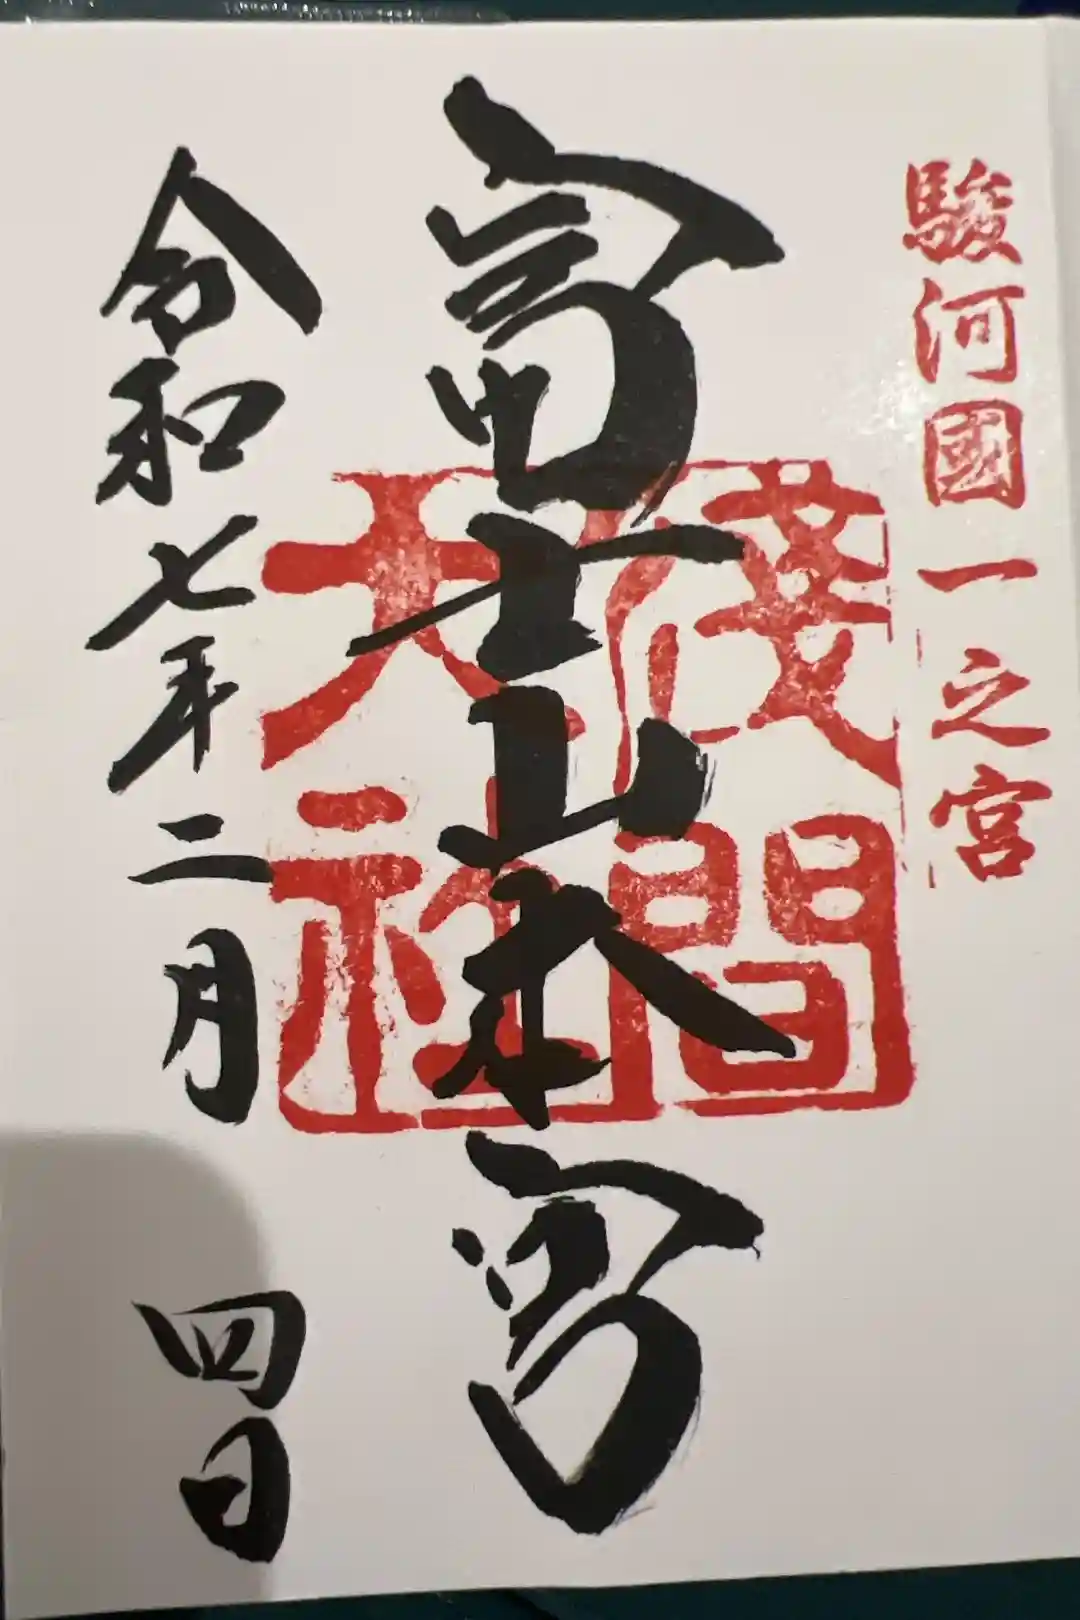 駿河國一之宮
富士山本宮
淺間大社
令和七年二月四日